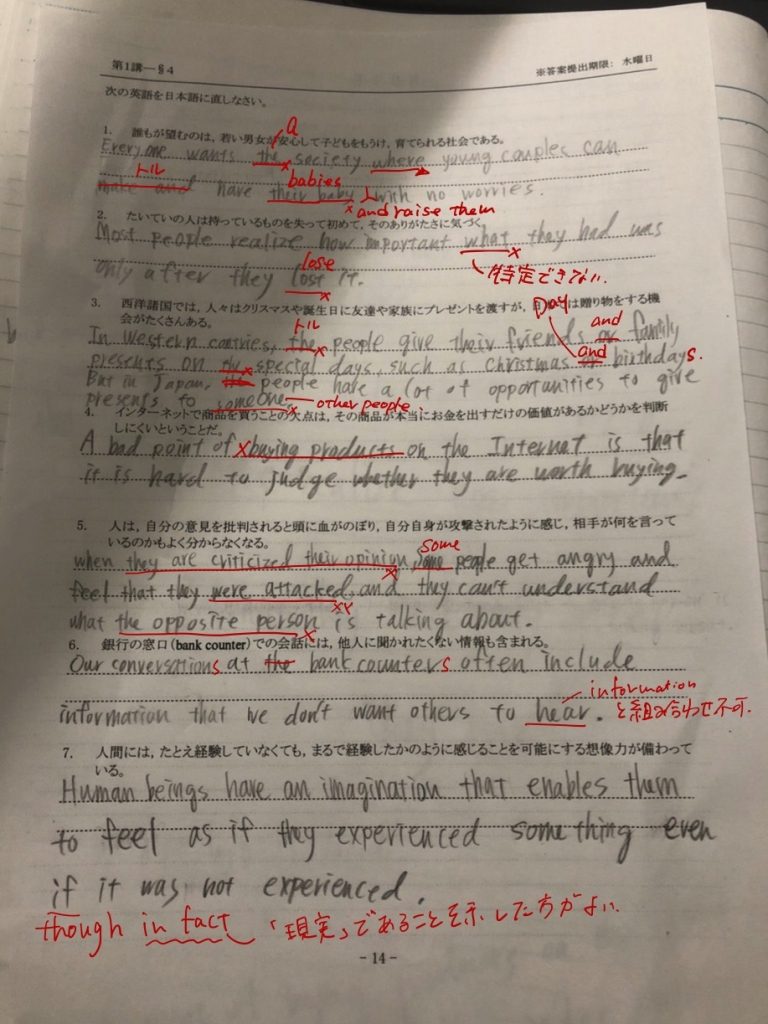 第1講―§4
※答案提出期限: 水曜日
次の英語を日本語に直しなさい。
1. 誰もが望むのは，若い男女が安心して子どもをもうけ，育てられる社会である。
a
Everyone wants the society where young couples can
トル
babies
make and have their baby with no worries.
and raise them
2. たいていの人は持っているものを失って初めて，そのありがたさに気づく
Most people realize how important what they had was
lose
特定できない.
only after they lost it.
3. 西洋諸国では，人々はクリスマスや誕生日に友達や家族にプレゼントを渡すが，日は贈り物をする機
会がたくさんある。
トル
Day
and
In Western contries, the people give their friends or family
and
presents on the special days, such as Christmas or birthdays.
But in Japan, the people have a lot of opportunities to give
presents to someone.
other people.
4. インターネットで商品を買うことの欠点は，その商品が本当にお金を出すだけの価値があるかどうかを判断
しにくいということだ。
A bad point of buying products on the Internet is that
it is hard to judge whether they are worth buying.
5. 人は，自分の意見を批判されると頭に血がのぼり，自分自身が攻撃されたように感じ，相手が何を言って
いるのかもよく分からなくなる。
some
when they are criticized their opinion, some people get angry and
feel that they were attacked, and they can't understand
what the opposite person is talking about.
6. 銀行の窓口（bank counter）での会話には，他人に聞かれたくない情報も含まれる。
Our conversations at the bank counters often include
information
information that we don't want others to hear.
と組み合わせ不可.
7. 人間には，たとえ経験していなくても，まるで経験したかのように感じることを可能にする想像力が備わって
いる。
Human beings have an imagination that enables them
to feel as if they experienced something even
if it was not experienced.
though in fact 「現実」であることを示した方がよい.
- 14 -